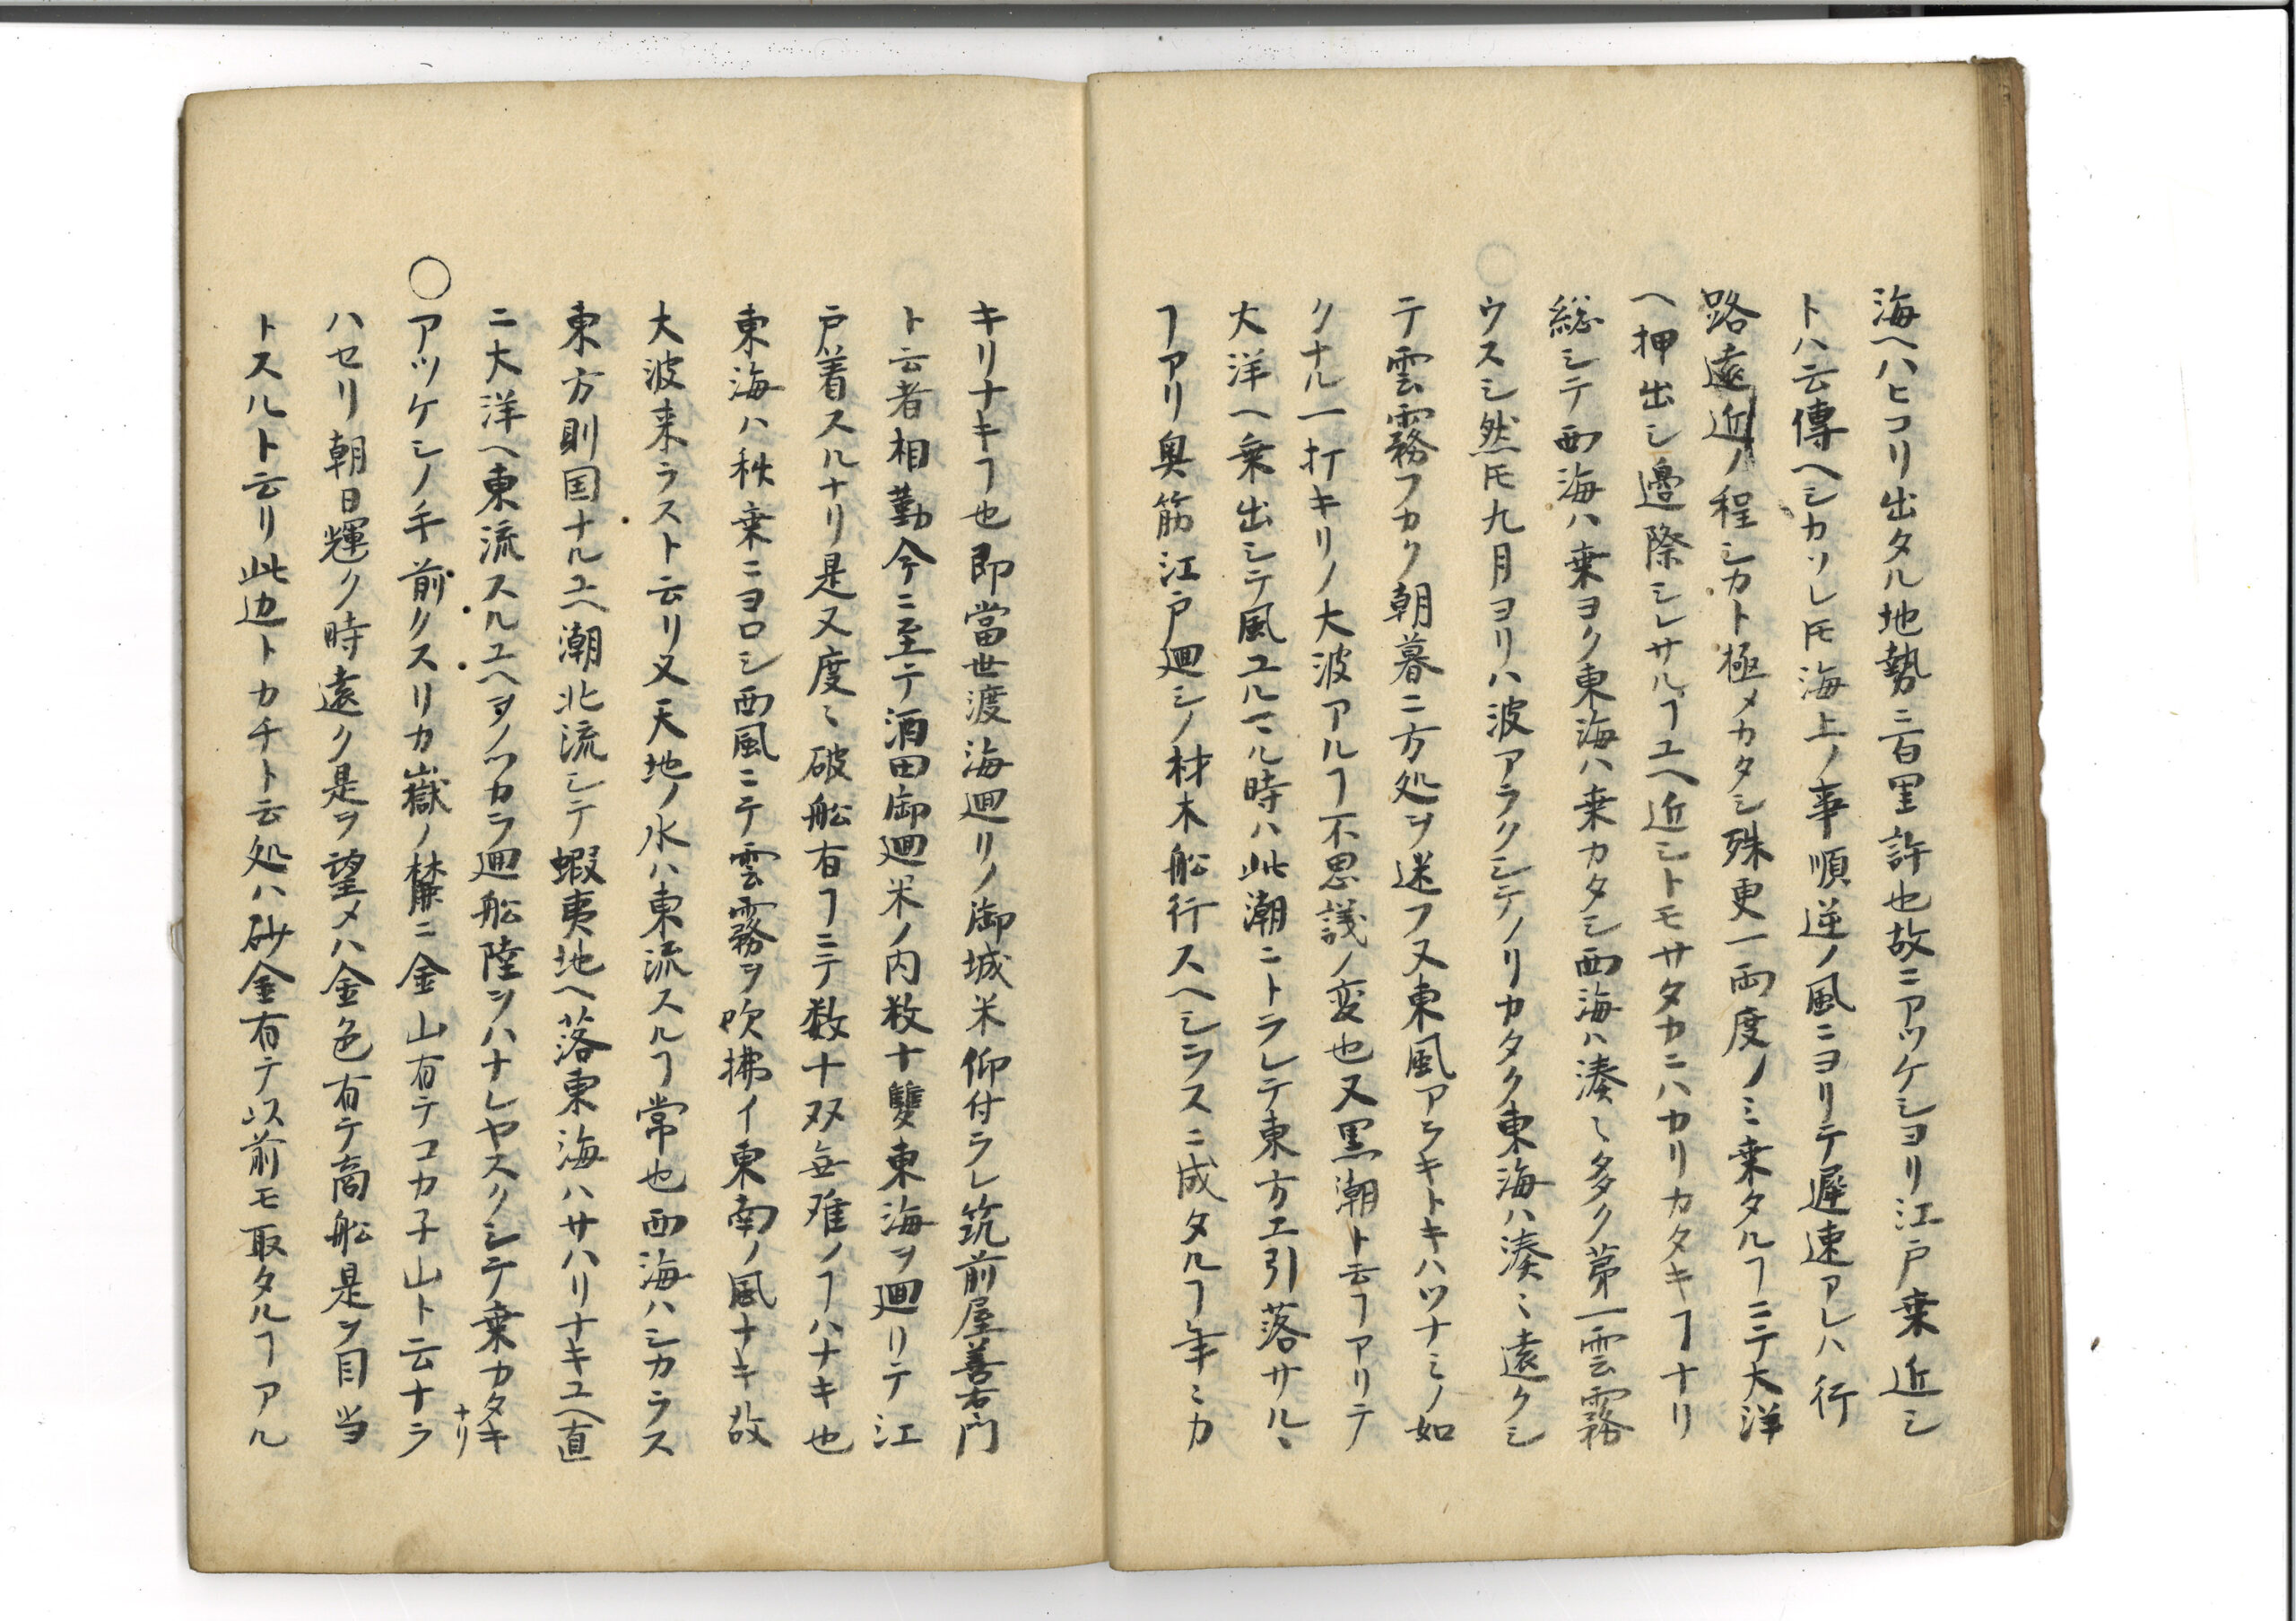 海ヘハヒコリ出タル地勢三百里許也故ニアツケシヨリ江戸乗近シ
トハ云傳ヘシカソレ𪜈海上ノ事順逆ノ風ニヨリテ遲速アレハ行
路遠近ノ程シカト極メカタシ殊更一両度ノミ乗タルヿニテ大洋
ヘ押出シ邉際シレサルヿユヘ近シトモサタカニハカリカタキヿナリ
総シテ西海ハ乗ヨク東海ハ乗カタシ西海ハ湊〻多ク第一雲霧
ウスシ然𪜈九月ヨリハ波アラクシテノリカタク東海ハ湊〻遠クシ
テ雲霧フカク朝暮ニ方処ヲ迷フ又東風アラキトキハツナミノ如
クナル一打キリノ大波アルヿ不思議ノ変也又黒潮ト云ヿアリテ
大洋ヘ乗出シテ風ユルマル時ハ此潮ニトラレテ東方エ引落サルヽ
ヿアリ奥筋江戸廻シノ材木船行スヘシラスニ成タルヿ年〻カ
キリナキヿ也即當世渡海廻リノ御城米仰付ラレ筑前屋善右門
ト云者相勤今ニ至テ酒田御廻米ノ内数十雙東海ヲ廻リテ江
戸着スルナリ是又度〻破船有ヿニテ数十双無難ノヿハナキ也
東海ハ秋乗ニヨロシ西風ニテ雲霧ヲ吹拂イ東南ノ風ナキ故
大波来ラスト云リ又天地ノ水ハ東流スルヿ常也西海ハシカラス
東方則国ナルユヘ潮北流シテ蝦夷地ヘ落東海ハサハリナキユヘ直
ニ大洋ヘ東流スルユヘヲノツカラ廻船陸ヲハナレヤスクシテ乗カタキ
ナリ
○アツケシノ手前クスリカ嶽ノ麓ニ金山有テコカ子山ト云ナラ
ハセリ朝日輝ク時遠ク是ヲ望メハ金色有テ商船是ヲ目当
トスルト云リ此辺トカチト云処ハ砂金有テ以前モ取タルヿアル